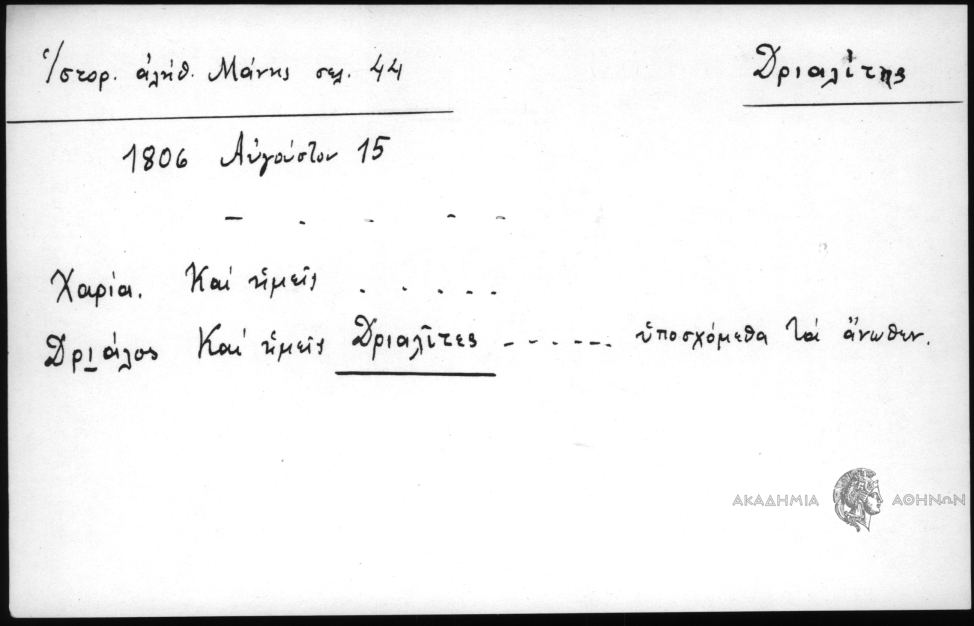 Ἱστορ. ἀλήθ. Μάνης σελ. 44
Δριαλίτης
1806 Αὐγούστου 15
– . – – –
Χαρία. Καί ἡμεῖς . . . . .
Δριάλος Καί ἡμεῖς Δριαλῖτες - - - - - - ὑποσχόμεθα τά ἄνωθεν.
ΑΚΑΔΗΜΙΑ ΑΘΗΝΩΝ